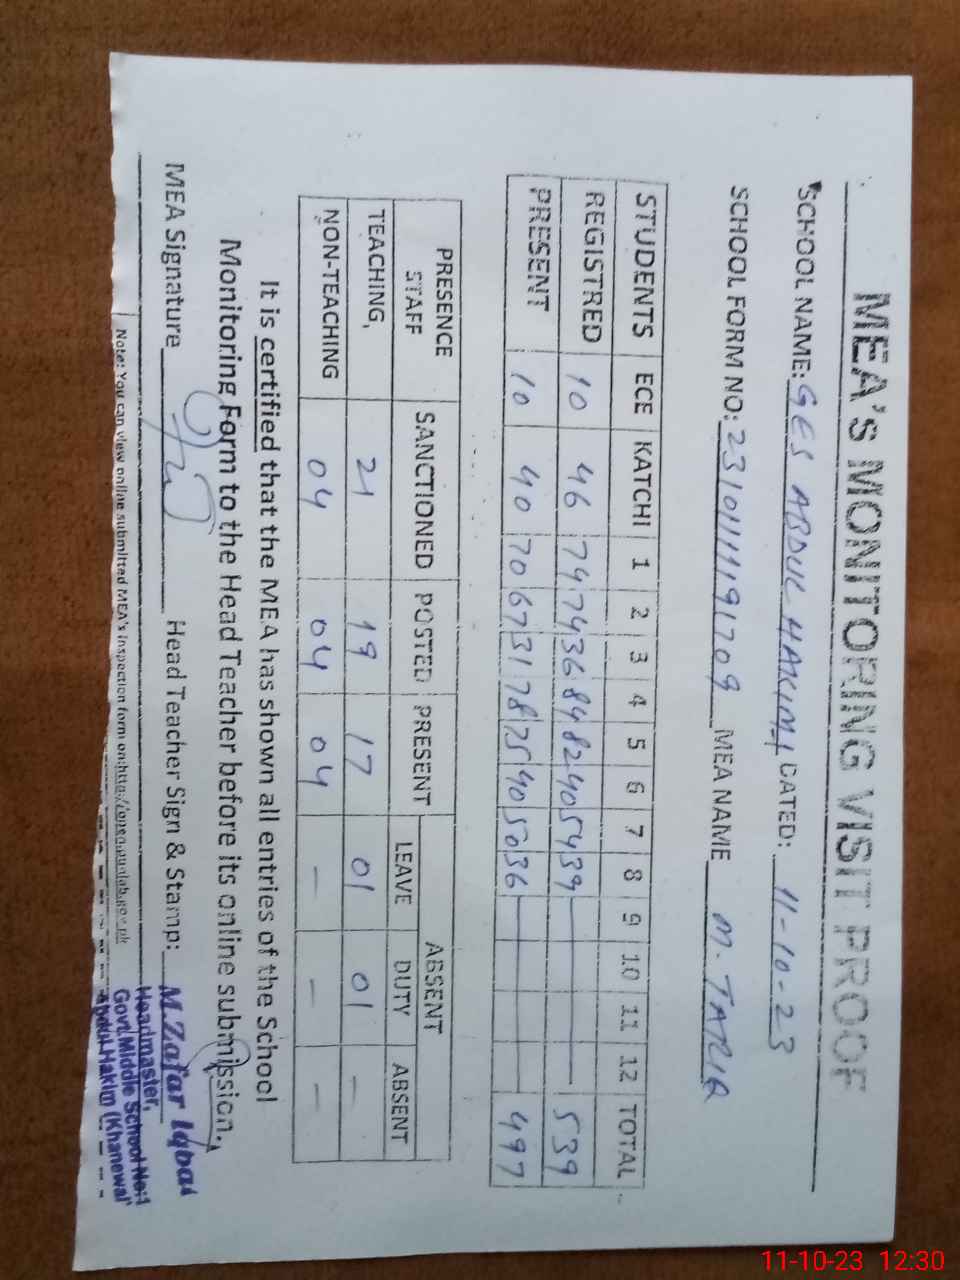 MEA'S MONITORING VISIT PROOF
SCHOOL NAME: GES ABDUL HAKIM 1 DATED: 11-10-23
SCHOOL FORM NO: MEA NAME M. TARIQ
STUDENTS ECE KATCHI 1 2 3 4 5 6 7 8 9 10 11 12 TOTAL
REGISTRED 10 46 74 74 36 84 82 40 54 39 539
PRESENT 10 40 70 67 31 78 75 40 50 36 497
PRESENCE STAFF SANCTIONED POSTED PRESENT ABSENT
LEAVE DUTY ABSENT
TEACHING, 21 19 17 01 01 –
NON-TEACHING 04 04 04 – – –
It is certified that the MEA has shown all entries of the School
Monitoring Form to the Head Teacher before its online submission.
MEA Signature Head Teacher Sign & Stamp:
M.Zafar Iqbal
Headmaster,
Govt.Middle School No:1
Abdul Hakim (Khanewal)
Note: You can view online submitted MEA's inspection form on:
11-10-23 12:30